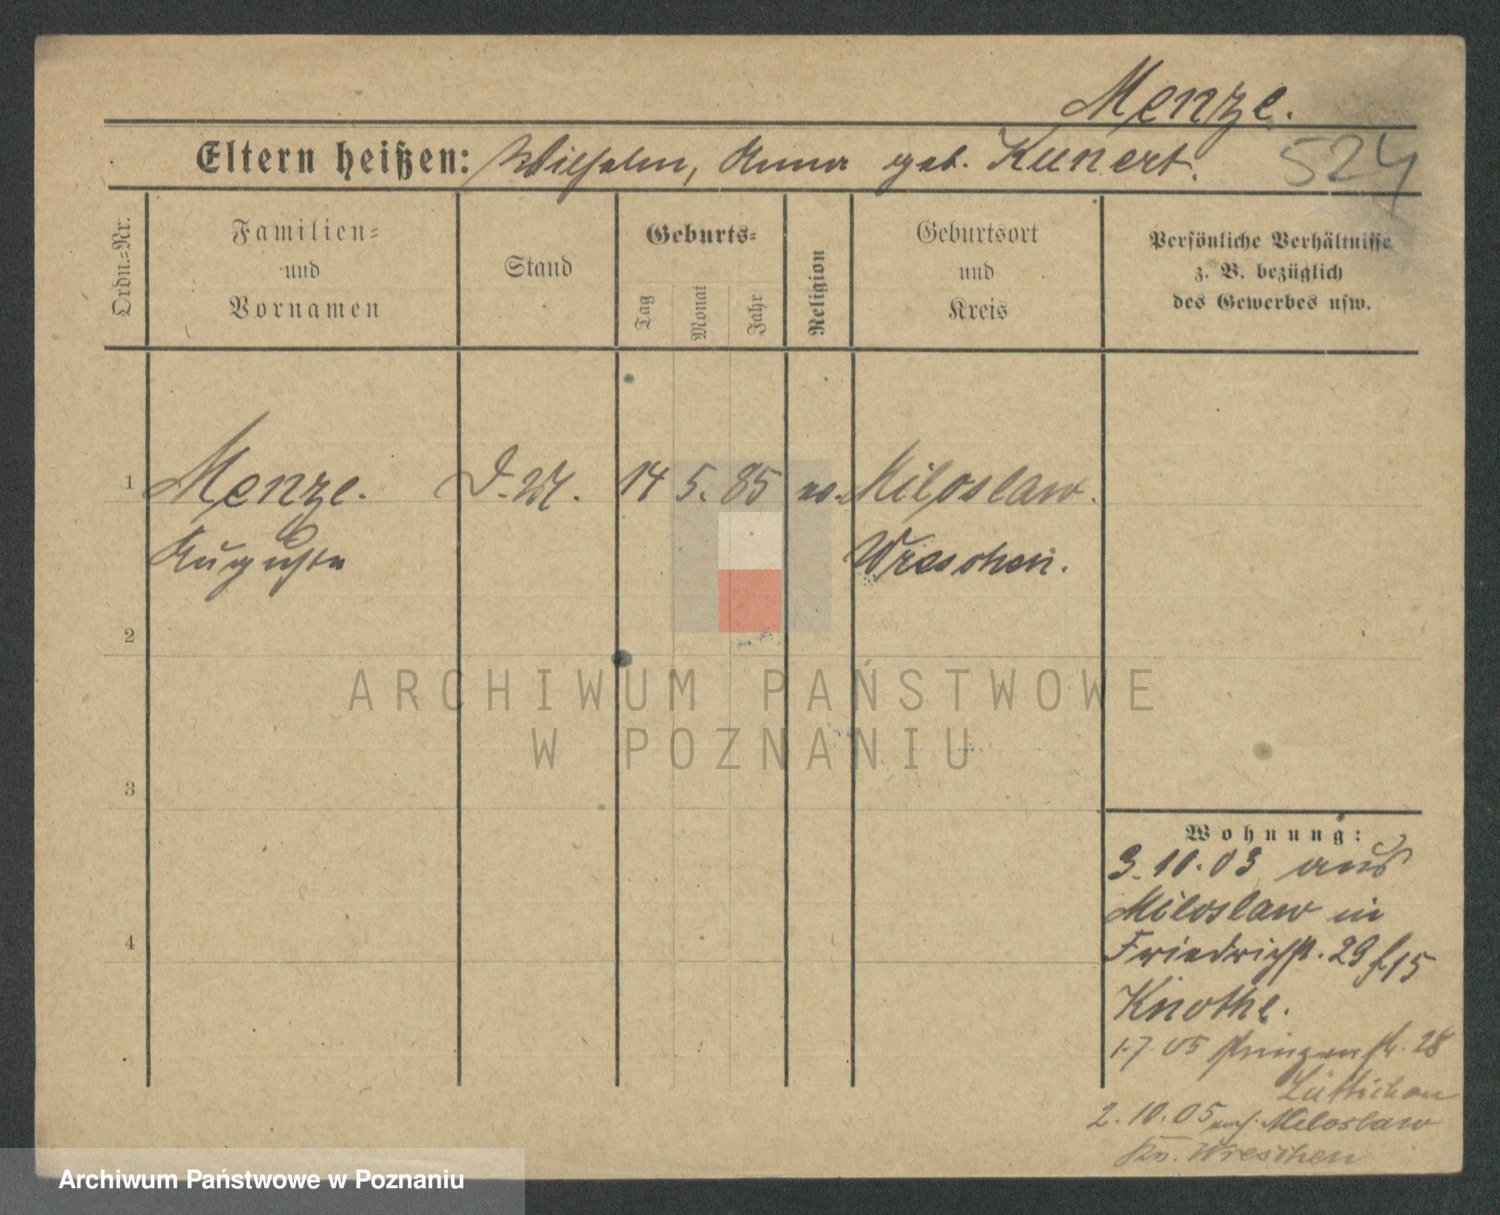 Menze.
Eltern heißen: Wilhelm, Anna geb. Kunert.
524
Ordn.-Nr.
Familien-
und
Vornamen
Stand
Geburts-
Tag
Monat
Jahr
Religion
Geburtsort
und
Kreis
Persönliche Verhältnisse
z. B. bezüglich
des Gewerbes usw.
1 Menze. D. M. 14 5. 85 ev. Miloslaw.
Auguste Wreschen.
2
ARCHIWUM PAŃSTWOWE
W POZNANIU
3
4
Wohnung:
3.10.03 aus
Miloslaw in
Friedrichst. 29 f. 15
Knothe.
1.7.05 Prinzenstr. 28
Lüttichau
2.10.05 nach Miloslaw
Kr. Wreschen
Archiwum Państwowe w Poznaniu